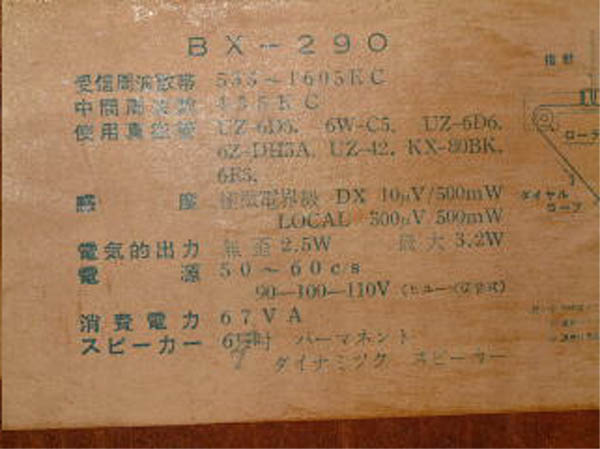 BX-290
受信周波数帯 535~1605KC
中間周波数 455KC
使用真空管 UZ-6D6, 6W-C5, UZ-6D6,
6Z-DH3A, UZ-42, KX-80BK,
6E5,
感度 極微電界級 DX 10μV/500mW
LOCAL 300μV 500mW
電気的出力 無歪 2.5W 最大 3.2W
電源 50~60c/s
90—100—110V
消費電力 67VA
スピーカー 6 吋 パーマネント
ダイナミック スピーカー
指針
ローラ
ダイヤル
ロープ